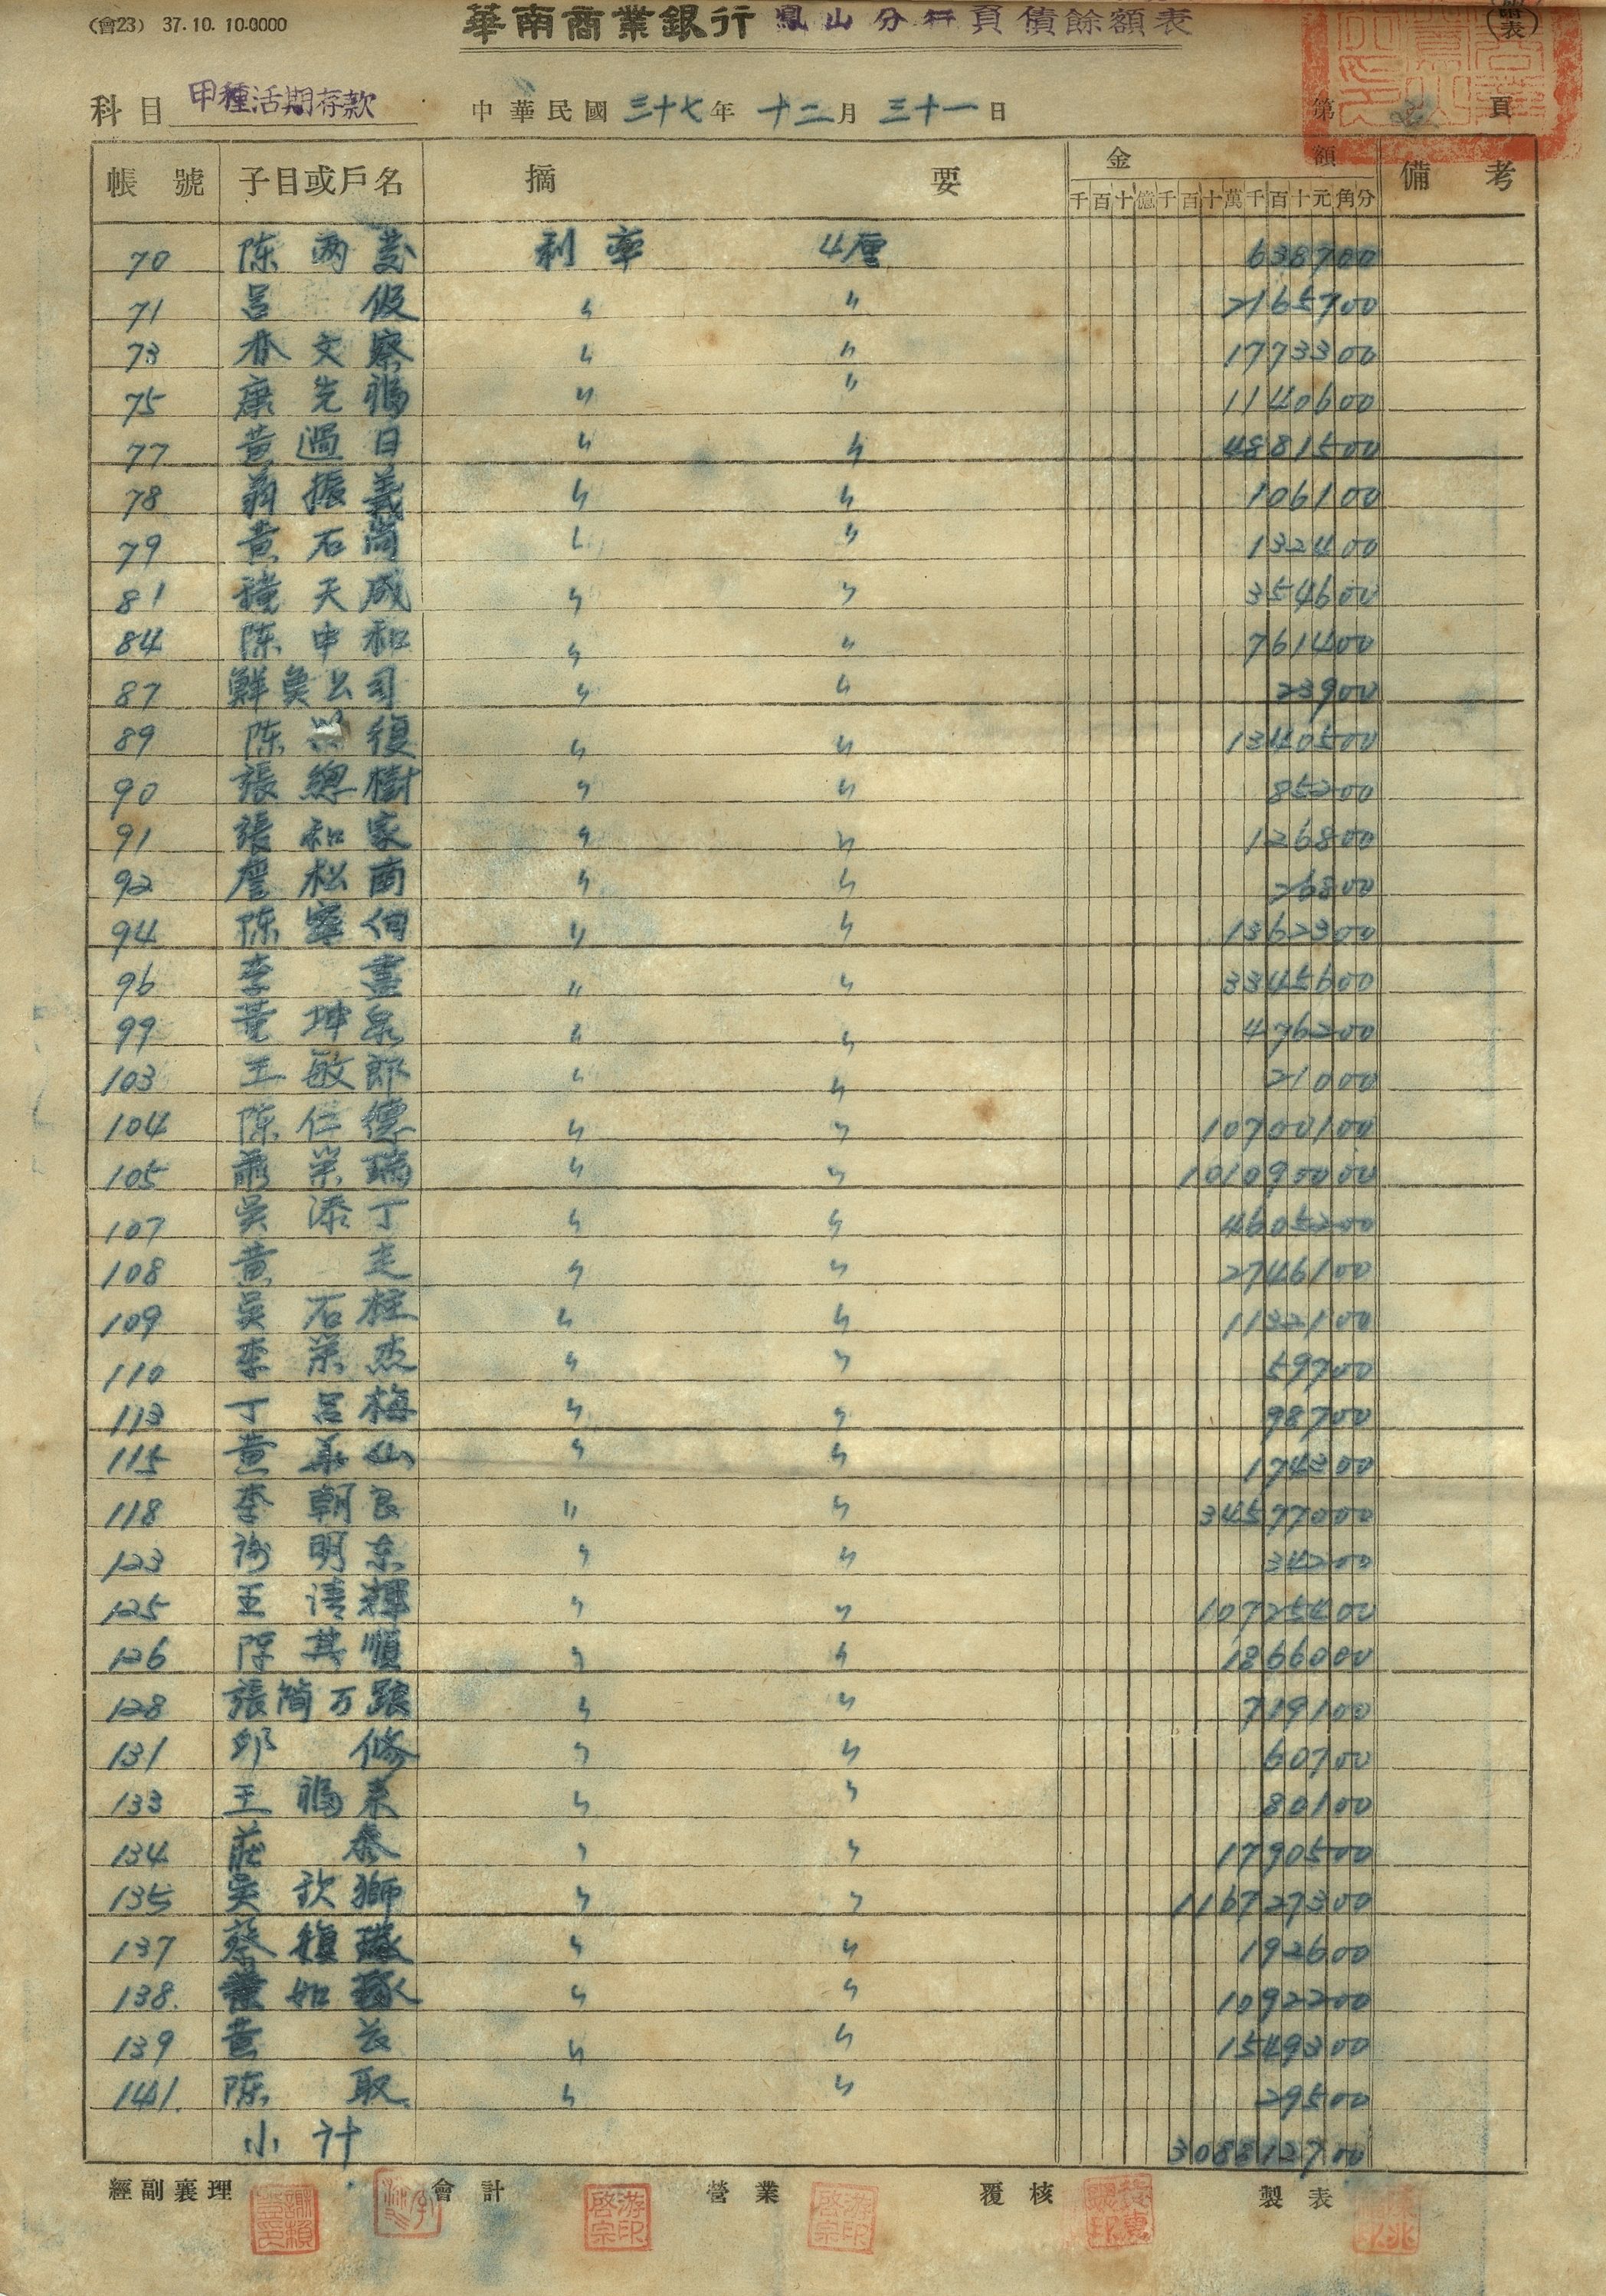 (會23) 37.10. 10.0000
華南商業銀行 鳳山分行 資債餘額表
科目 甲種活期存款 中華民國 三十七年 十二月 三十一日 第 頁
帳號 子目或戶名 摘要 金額 備考
千百十億千百十萬千百十元角分
70 陈两 利率 4厘 638700
71 呂 假 〃 〃 2165700
73 文察 〃 〃 1773300
75 康先福 〃 〃 1140600
77 黃過日 〃 〃 4881500
78 振義 〃 〃 106100
79 黃石崗 〃 〃 132400
81 天成 〃 〃 354600
84 陈申和 〃 〃 761400
87 鮮魚公司 〃 〃 23900
89 陈 復 〃 〃 1340500
90 張總樹 〃 〃 85200
91 張和家 〃 〃 126800
92 詹松南 〃 〃 26800
94 陈寧 〃 〃 1362300
96 李 盡 〃 〃 3345600
99 黃坤泉 〃 〃 476200
103 王敏郎 〃 〃 21000
104 陈仁德 〃 〃 10700100
105 蕭荣瑞 〃 〃 101090000
107 吳添丁 〃 〃 4605200
108 黃 走 〃 〃 2746100
109 吳石柱 〃 〃 1132100
110 李荣杰 〃 〃 59700
113 丁呂梅 〃 〃 98700
115 黃華仙 〃 〃 174300
118 李朝良 〃 〃 34577000
123 謝明东 〃 〃 34200
125 王清輝 〃 〃 10725400
126 陈其順 〃 〃 1866000
128 張簡万 〃 〃 719100
131 邱 修 〃 〃 60700
133 王福来 〃 〃 80100
134 莊 泰 〃 〃 1790500
135 吳欽獅 〃 〃 116727300
137 蔡復 〃 〃 192600
138. 如琢 〃 〃 1092200
139 黃 〃 〃 1549300
141. 陈 取 〃 〃 29500
小計 308812700
經副襄理 會計 營業 覆核 製表
游印啓宗
游印啓宗